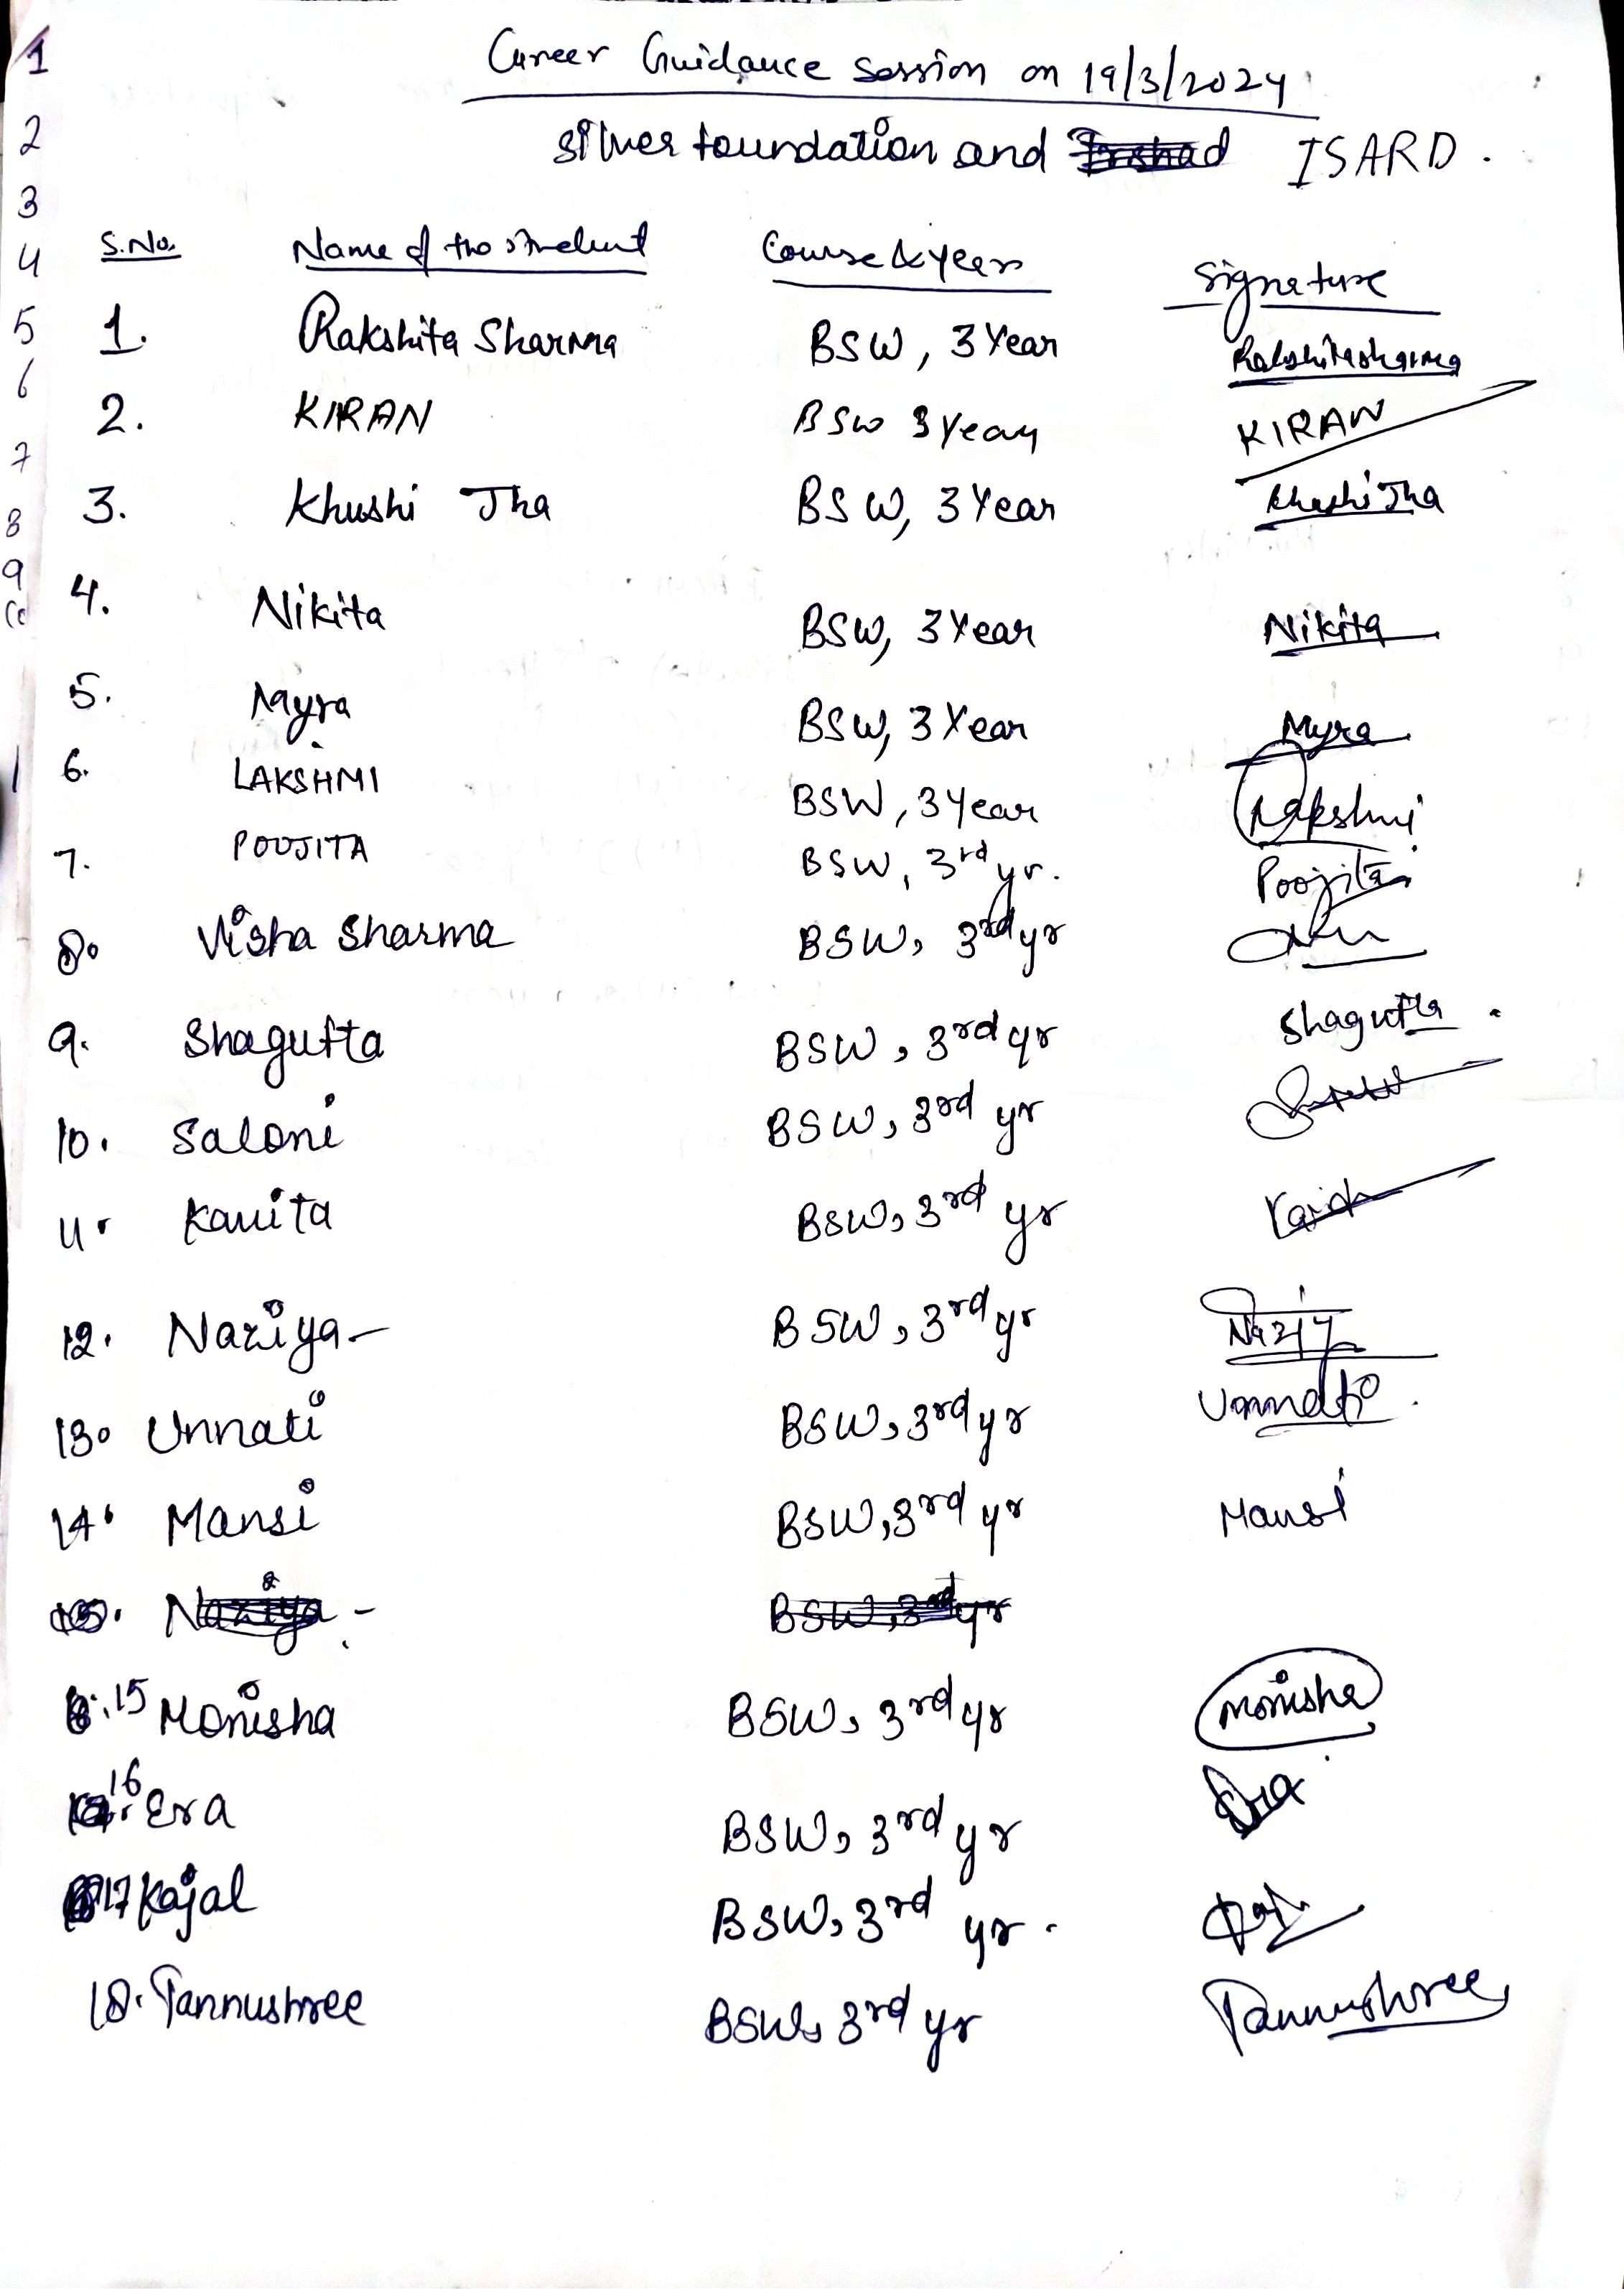 Career Guidance session on 19/3/2024
silver foundation and ISARD.
S.No. Name of the student Course & year Signature
1. Rakshita Sharma BSW, 3 Year Rakshita sharma
2. KIRAN BSW 3 Year KIRAN
3. Khushi Jha BSW, 3 Year Khushi Jha
4. Nikita BSW, 3 Year Nikita
5. Myra BSW, 3 Year Myra
6. LAKSHMI BSW, 3 Year Lakshmi
7. POOJITA BSW, 3rd yr. Poojita
8. Visha Sharma BSW, 3rd yr
9. Shagufta BSW, 3rd yr Shagufta.
10. Saloni BSW, 3rd yr
11. Kavita BSW, 3rd yr
12. Naziya BSW, 3rd yr
13. Unnati BSW, 3rd yr Unnati.
14. Mansi BSW, 3rd yr Mansi
Naziya - BSW, 3rd yr
15 Monisha BSW, 3rd yr Monisha
16 Era BSW, 3rd yr Era
17 Kajal BSW, 3rd yr.
18. Tannushree BSW, 3rd yr Tannushree
1
2
3
4
5
6
7
8
9